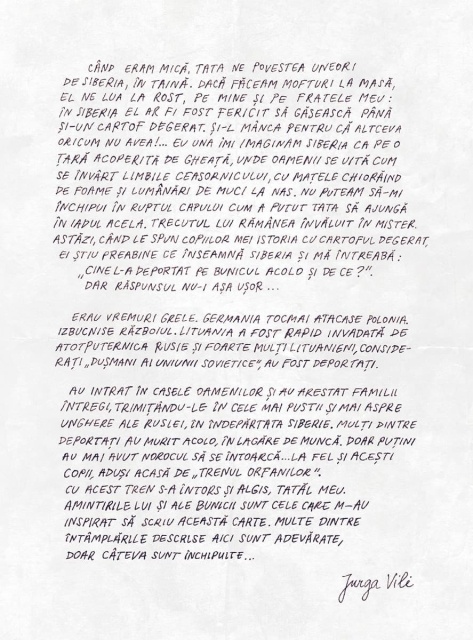 CÂND ERAM MICĂ, TATA NE POVESTEA UNEORI
DE SIBERIA, ÎN TAINĂ. DACĂ FĂCEAM MOFTURI LA MASĂ,
EL NE LUA LA ROST, PE MINE ȘI PE FRATELE MEU:
ÎN SIBERIA EL AR FI FOST FERICIT SĂ GĂSEASCĂ PÂNĂ
ȘI-UN CARTOF DEGERAT. ȘI-L MÂNCA PENTRU CĂ ALTCEVA
ORICUM NU AVEA!... EU UNA ÎMI IMAGINAM SIBERIA CA PE O
ȚARĂ ACOPERITĂ DE GHEAȚĂ, UNDE OAMENII SE UITĂ CUM
SE ÎNVÂRT LIMBILE CEASORNICULUI, CU MAȚELE CHIORĂIND
DE FOAME ȘI LUMÂNĂRI DE MUCI LA NAS. NU PUTEAM SĂ-MI
ÎNCHIPUI ÎN RUPTUL CAPULUI CUM A PUTUT TATA SĂ AJUNGĂ
ÎN IADUL ACELA. TRECUTUL LUI RĂMÂNEA ÎNVĂLUIT ÎN MISTER.
ASTĂZI, CÂND LE SPUN COPIILOR MEI ISTORIA CU CARTOFUL DEGERAT,
EI ȘTIU PREABINE CE ÎNSEAMNĂ SIBERIA ȘI MĂ ÎNTREABĂ:
„CINE L-A DEPORTAT PE BUNICUL ACOLO ȘI DE CE?".
DAR RĂSPUNSUL NU-I AȘA UȘOR...
ERAU VREMURI GRELE. GERMANIA TOCMAI ATACASE POLONIA.
IZBUCNISE RĂZBOIUL. LITUANIA A FOST RAPID INVADATĂ DE
ATOTPUTERNICA RUSIE ȘI FOARTE MULȚI LITUANIENI, CONSIDE-
RAȚI „DUȘMANI AI UNIUNII SOVIETICE", AU FOST DEPORTAȚI.
AU INTRAT ÎN CASELE OAMENILOR ȘI AU ARESTAT FAMILII
ÎNTREGI, TRIMIȚÂNDU-LE ÎN CELE MAI PUSTII ȘI MAI ASPRE
UNGHERE ALE RUSIEI, ÎN ÎNDEPĂRTATA SIBERIE. MULȚI DINTRE
DEPORTAȚI AU MURIT ACOLO, ÎN LAGĂRE DE MUNCĂ, DOAR PUȚINI
AU MAI AVUT NOROCUL SĂ SE ÎNTOARCĂ...LA FEL ȘI ACEȘTI
COPII, ADUȘI ACASĂ DE „TRENUL ORFANILOR".
CU ACEST TREN S-A ÎNTORS ȘI ALGIS, TATĂL MEU.
AMINTIRILE LUI ȘI ALE BUNICII SUNT CELE CARE M-AU
INSPIRAT SĂ SCRIU ACEASTĂ CARTE. MULTE DINTRE
ÎNTÂMPLĂRILE DESCRISE AICI SUNT ADEVĂRATE,
DOAR CÂTEVA SUNT ÎNCHIPUITE...
Jurga Vilė